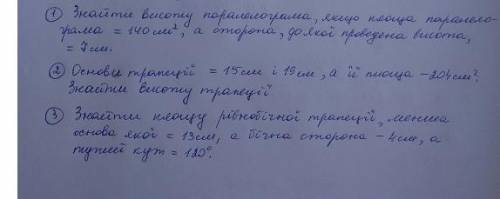 ① Знайти висоту паралелограма, якщо площа паралело-
грама = 140 см², а сторона, до якої проведена висота,
= 7 см.
② Основи трапеції = 15 см і 19 см, а її площа - 204 см².
Знайти висоту трапеції
③ Знайти площу рівнобічної трапеції, менша
основа якої = 13 см, а бічна сторона - 4 см, а
тупий кут = 120°.